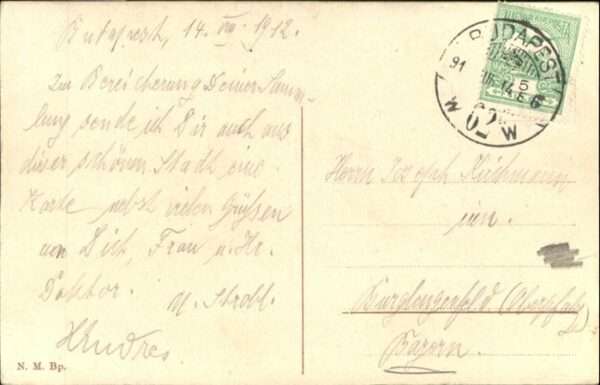 Budapest, 14. VIII. 1912.
Zur Bereicherung Deiner Samm-
lung sende ich Dir auch aus
dieser schönen Stadt eine
Karte nebst vielen Grüßen
von Dich, Frau u. Hr.
Doktor.
M. Strobl.
N. M. Bp.
BUDAPEST
Herrn Josef Kirchmann
jun.
Burglengenfeld (Oberpfalz)
Bayern.